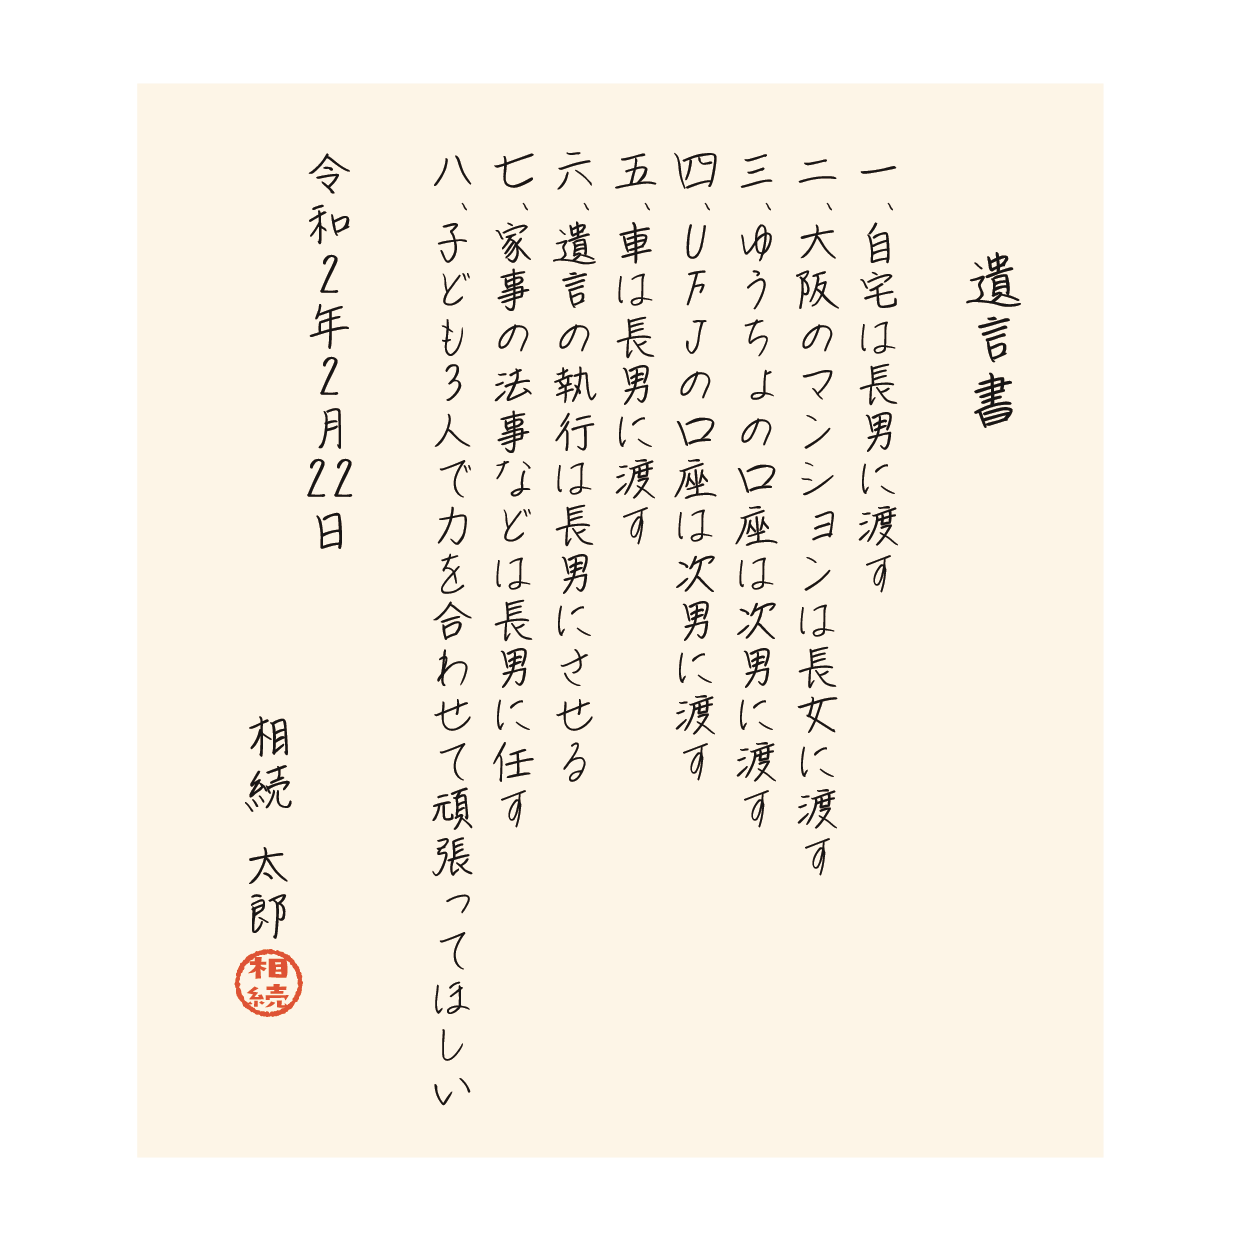 遺言書
一、自宅は長男に渡す
二、大阪のマンションは長女に渡す
三、ゆうちよの口座は次男に渡す
四、UFJの口座は次男に渡す
五、車は長男に渡す
六、遺言の執行は長男にさせる
七、家事の法事などは長男に任す
八、子ども3人で力を合わせて頑張ってほしい
令和2年2月22日
相続 太郎
相続